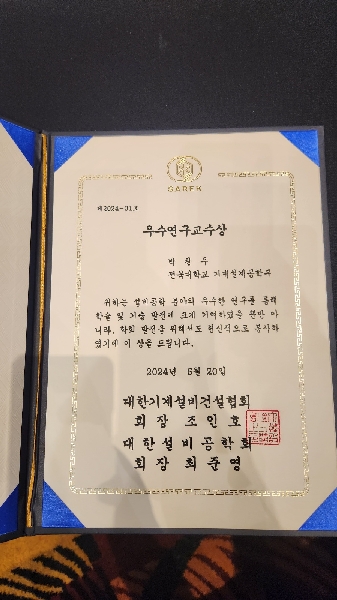 SAREK
제2024-01호
우수연구교수상
박 창 수
전북대학교 기계설계공학부
귀하는 설비공학 분야의 우수한 연구를 통해
학술 및 기술 발전에 크게 기여하였을 뿐만 아
니라, 학회 발전을 위해서도 헌신적으로 봉사하
였기에 이 상을 드립니다.
2024년 6월 20일
대한기계설비건설협회
회 장 조 인 호
대 한 설 비 공 학 회
회 장 최 준 영